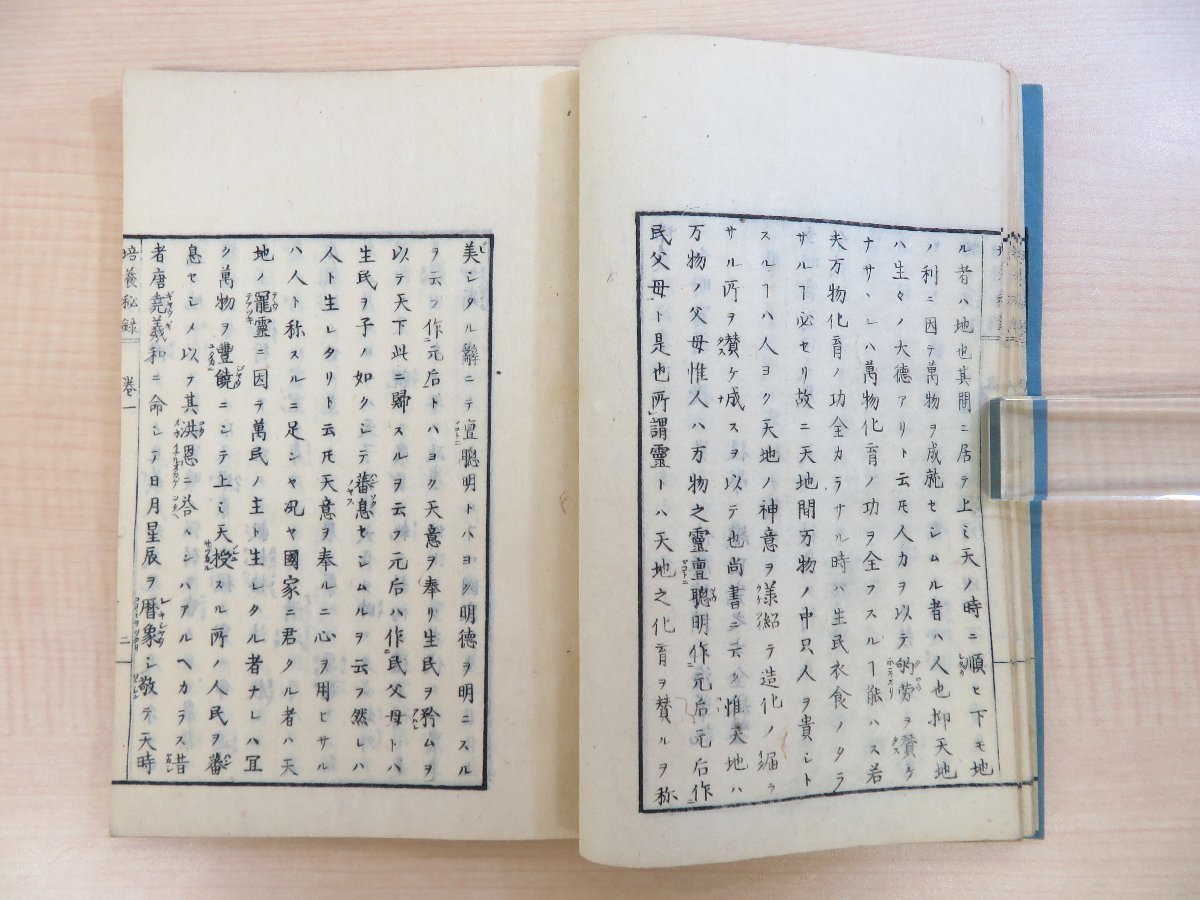 ル者ハ地也其間ニ居テ上ミ天ノ時ニ順ヒ下モ地
ノ利ニ因テ萬物ヲ成就セシムル者ハ人也抑天地
ハ生々ノ大德アリト云𪜈人力ヲ以テ劬労ヲ賛ケ
ナサヽレハ萬物化育ノ功ヲ全フスルヿ能ハス若
夫万物化育ノ功全カラサル時ハ生民衣食ノタラ
サルヿ必セリ故ニ天地間万物ノ中只人ヲ貴シト
スルヿハ人ヨク天地ノ神意ヲ様ラ造化ノ
サル所ヲ賛ケ成スヲ以テ也尚書ニ云ク惟天地ハ
万物ノ父母惟人ハ万物之靈亶聰明作元后元后作
民父母ト是也所謂靈トハ天地之化育ヲ賛ルヲ称
美シタル辭ニテ亶聰明トハヨク明德ヲ明ニスル
ヲ云フ作元后トハヨク天意ヲ奉リ生民ヲ矜ムヲ
以テ天下此ニ歸スルヲ云フ元后ハ作民父母トハ
生民ヲ子ノ如クシテ蕃息セシムルヲ云フ然レハ
人ト生レタリト云𪜈天意ヲ奉ルニ心ヲ用ヒサル
ハ人ト称スルニ足ンヤ况ヤ國家ニ君タル者ハ天
地ノ寵靈ニ因テ萬民ノ主ト生レタル者ナレハ冝
ク萬物ヲ豐饒ニシテ上ミ天授スル所ノ人民ヲ蕃
息セシメ以テ其洪恩ニ荅ヘンハアルヘカラス昔
者唐堯羲和ニ命シテ日月星辰ヲ暦象シ敬テ天時
培養秘録 巻一 二